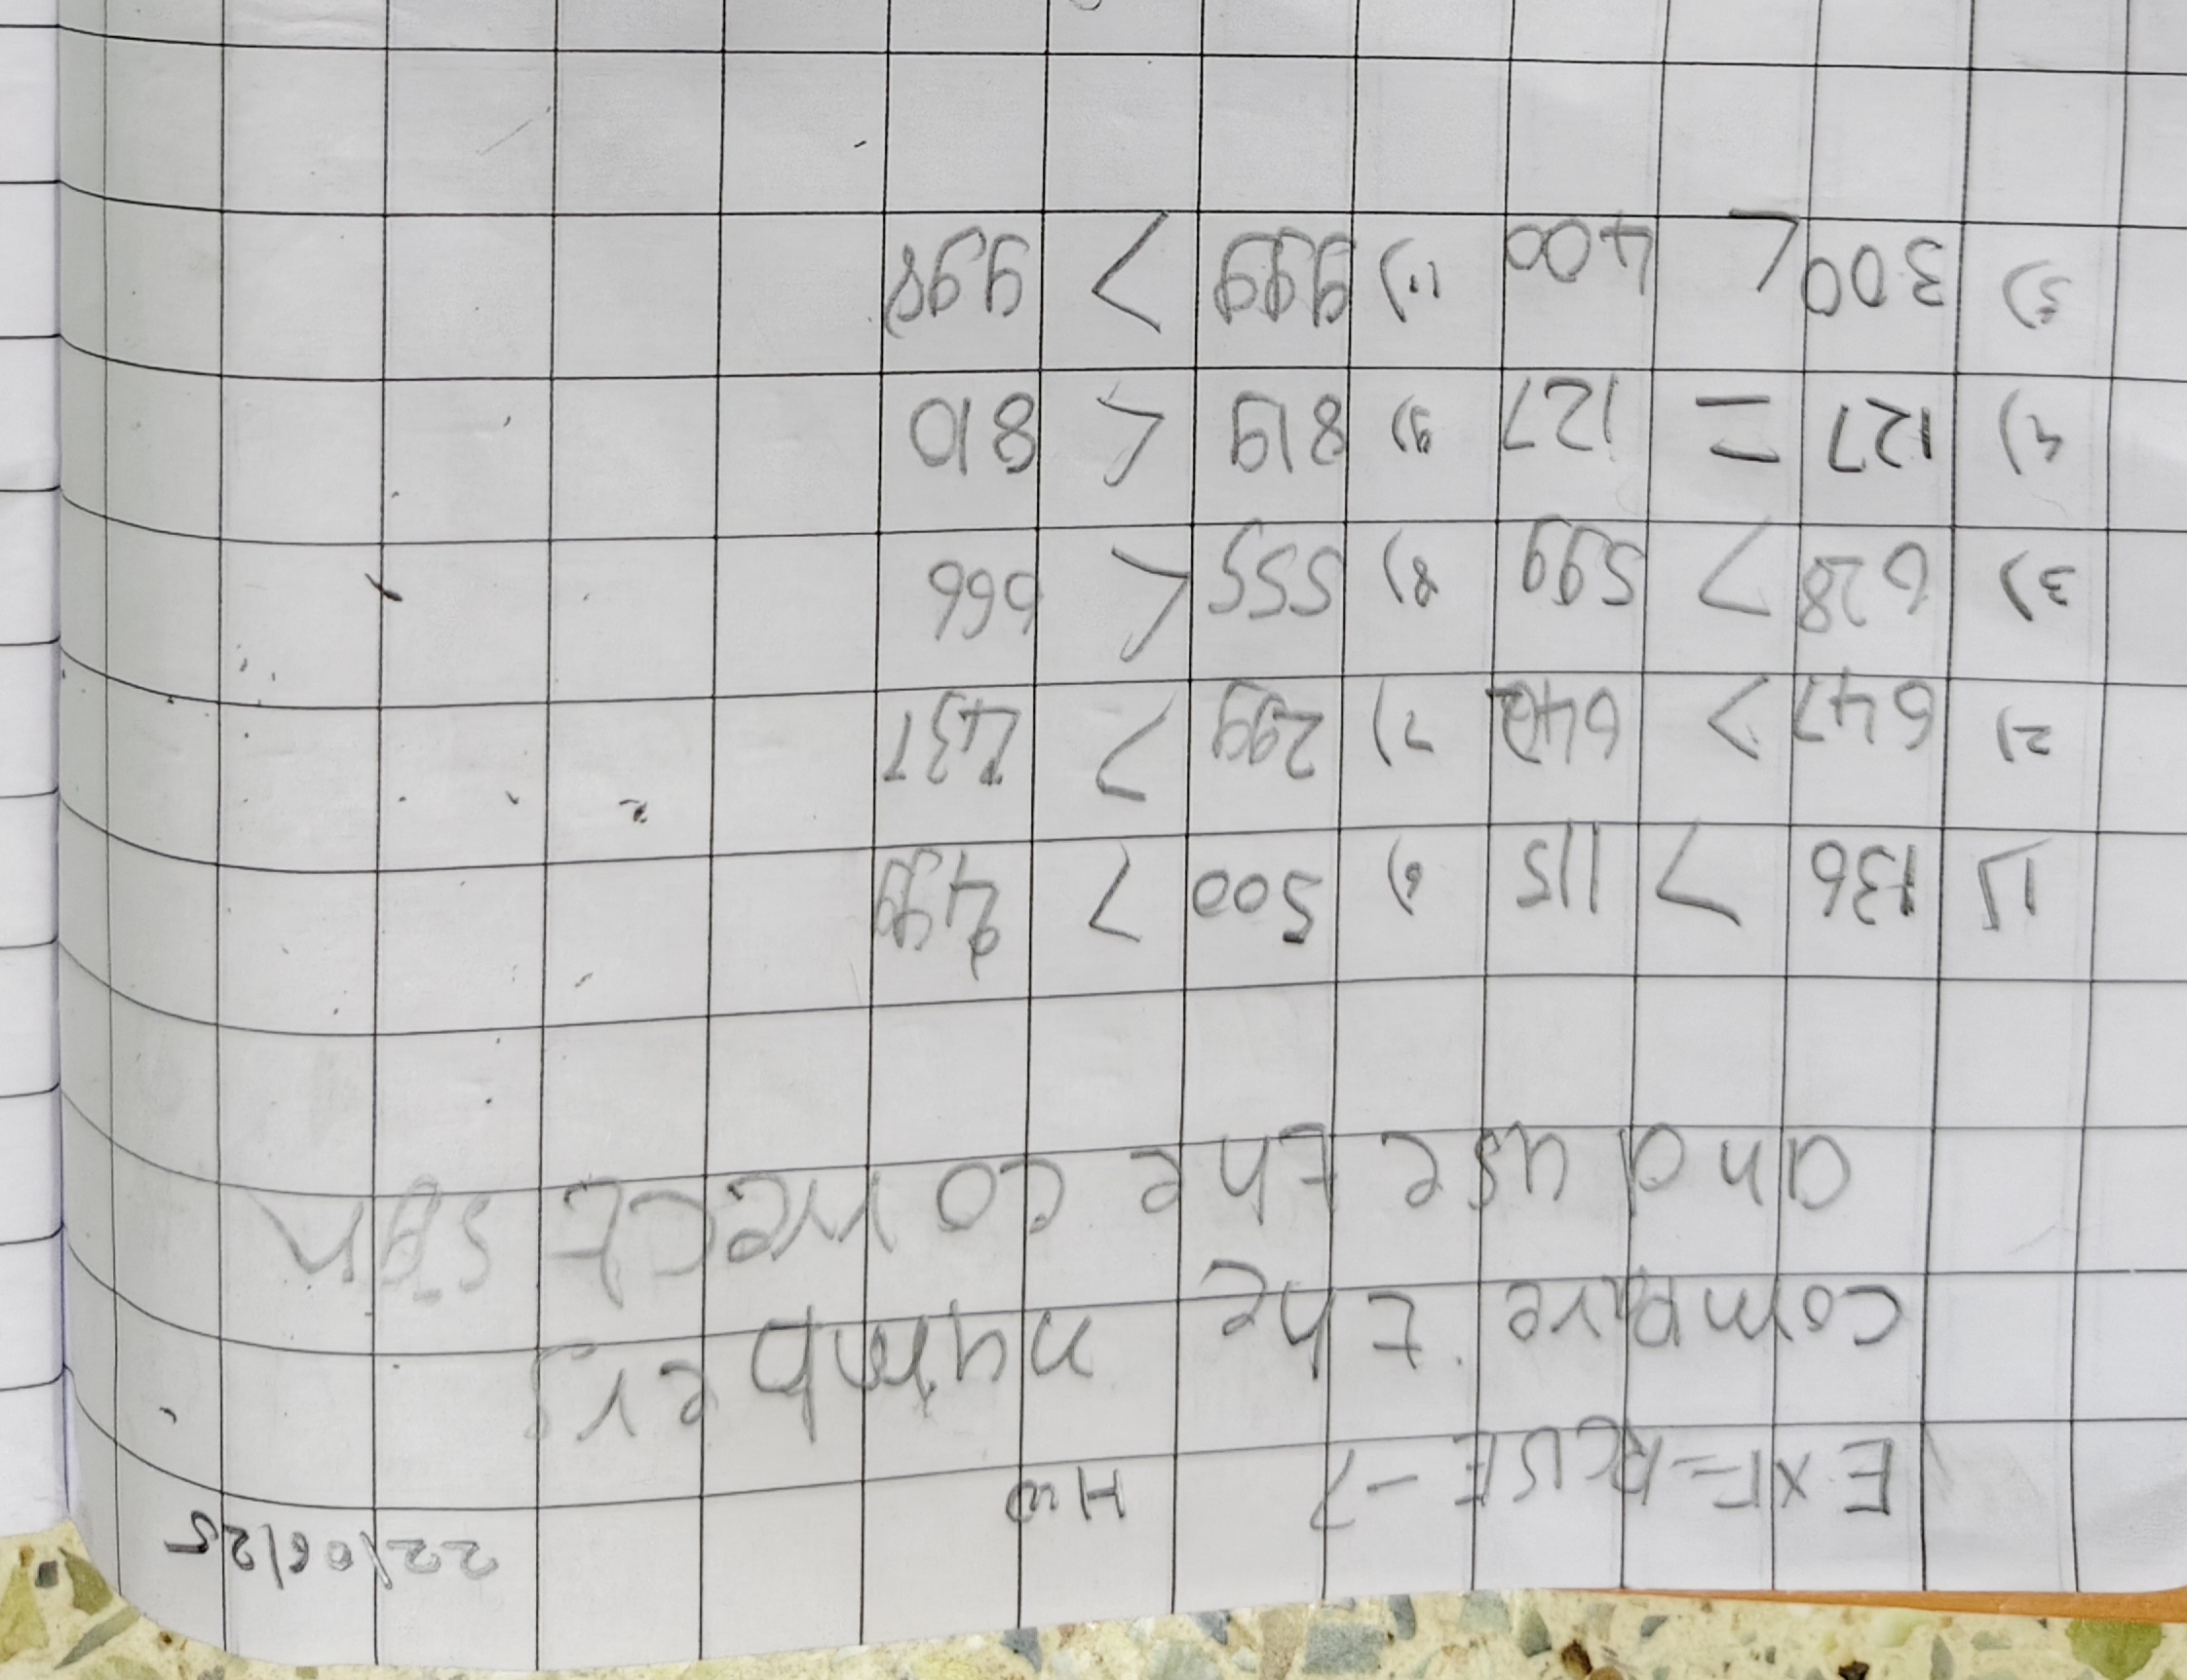 22/06/25
EXERCISE-7 HW
compare the numbers
and use the correct sign
1) 136 > 115 6) 500 > 499
2) 647 > 642 7) 299 > 437
3) 628 > 599 8) 555 < 666
4) 127 = 127 9) 819 < 810
5) 300 < 400 10) 999 > 998